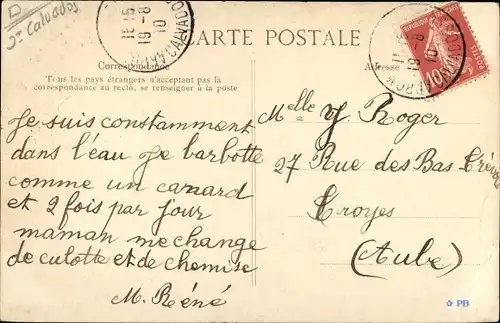 D
St Calvados
CARTE POSTALE
11 15
19 - 8
10
CALVADOS
Correspondance
Tous les pays étrangers n'acceptant pas la
correspondance au recto, se renseigner à la poste
Je suis constamment
dans l'eau Je barbotte
comme un canard
et 2 fois par jour
maman me change
de culotte et de chemise
M. Réné
Adresse
11
19 - 8
10
10
Melle Y Roger
27 Rue des Bas-Trévois
Troyes
(Aube)
PB